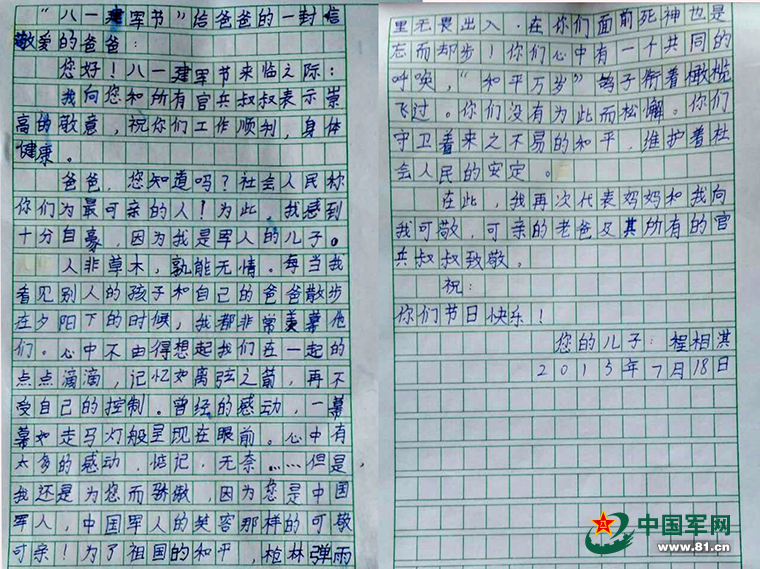 “八一建军节”给爸爸的一封信
敬爱的爸爸：
您好！八一建军节来临之际：
我向您和所有官兵叔叔表示崇
高的敬意，祝你们工作顺利，身体
健康。
爸爸，您知道吗？社会人民称
你们为最可亲的人！为此，我感到
十分自豪，因为我是军人的儿子。
人非草木，孰能无情。每当我
看见别人的孩子和自己的爸爸散步
在夕阳下的时候，我都非常羡慕他
们。心中不由得想起我们在一起的
点点滴滴，记忆如离弦之箭，再不
受自己的控制。曾经的感动，一幕
幕如走马灯般呈现在眼前。心中有
太多的感动，惦记，无奈……但是，
我还是为您而骄傲，因为您是中国
军人，中国军人的笑容那样的可敬
可亲！为了祖国的和平，枪林弹雨
里无畏出入．在你们面前死神也是
忘而却步！你们心中有一个共同的
呼唤，“和平万岁”鸽子衔着橄榄
飞过。你们没有为此而松懈。你们
守卫着来之不易的和平，维护着社
会人民的安定。
在此，我再次代表妈妈和我向
我可敬，可亲的老爸及其所有的官
兵叔叔致敬。
祝：
你们节日快乐！
您的儿子：程相淇
2015年7月18日
中国军网
www.81.cn